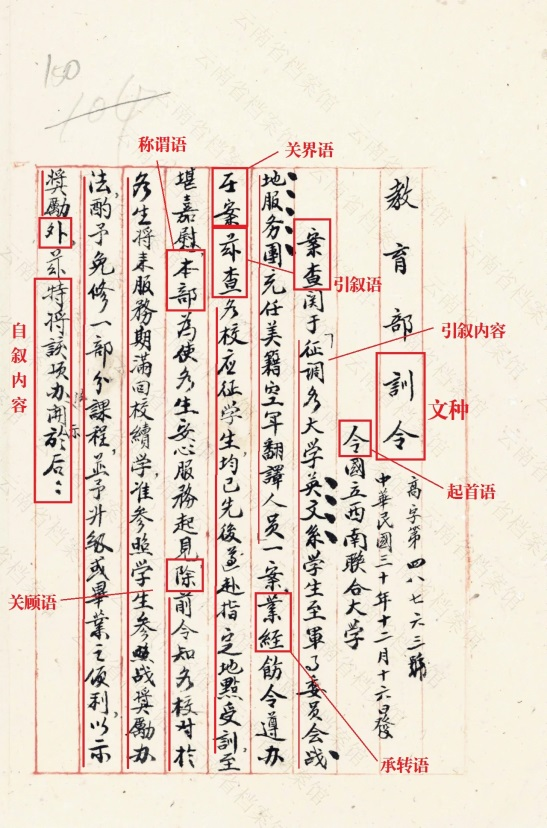 150
教育部訓令
高字第四八七六三號
中華民國三十年十二月十六日發
令國立西南聯合大學
案查関于「征调各大学英文系学生至軍事委员会战
地服务團充任美籍空军翻譯人员一案,業經飭令遵办
在案。茲查各校应征学生,均已先後遵赴指定地點受訓,至
堪嘉慰,本部為使各生安心服務起見,除前令知各校对於
各生将来服務期滿回校續学,准參照学生參照战奬勵办
法,酌予免修一部分課程,並予升級或畢業之便利,以示
奬勵外,茲特将該項办法開示於后:
称谓语
关界语
引叙语
引叙内容
文种
起首语
承转语
关顾语
自叙内容
云南省档案馆